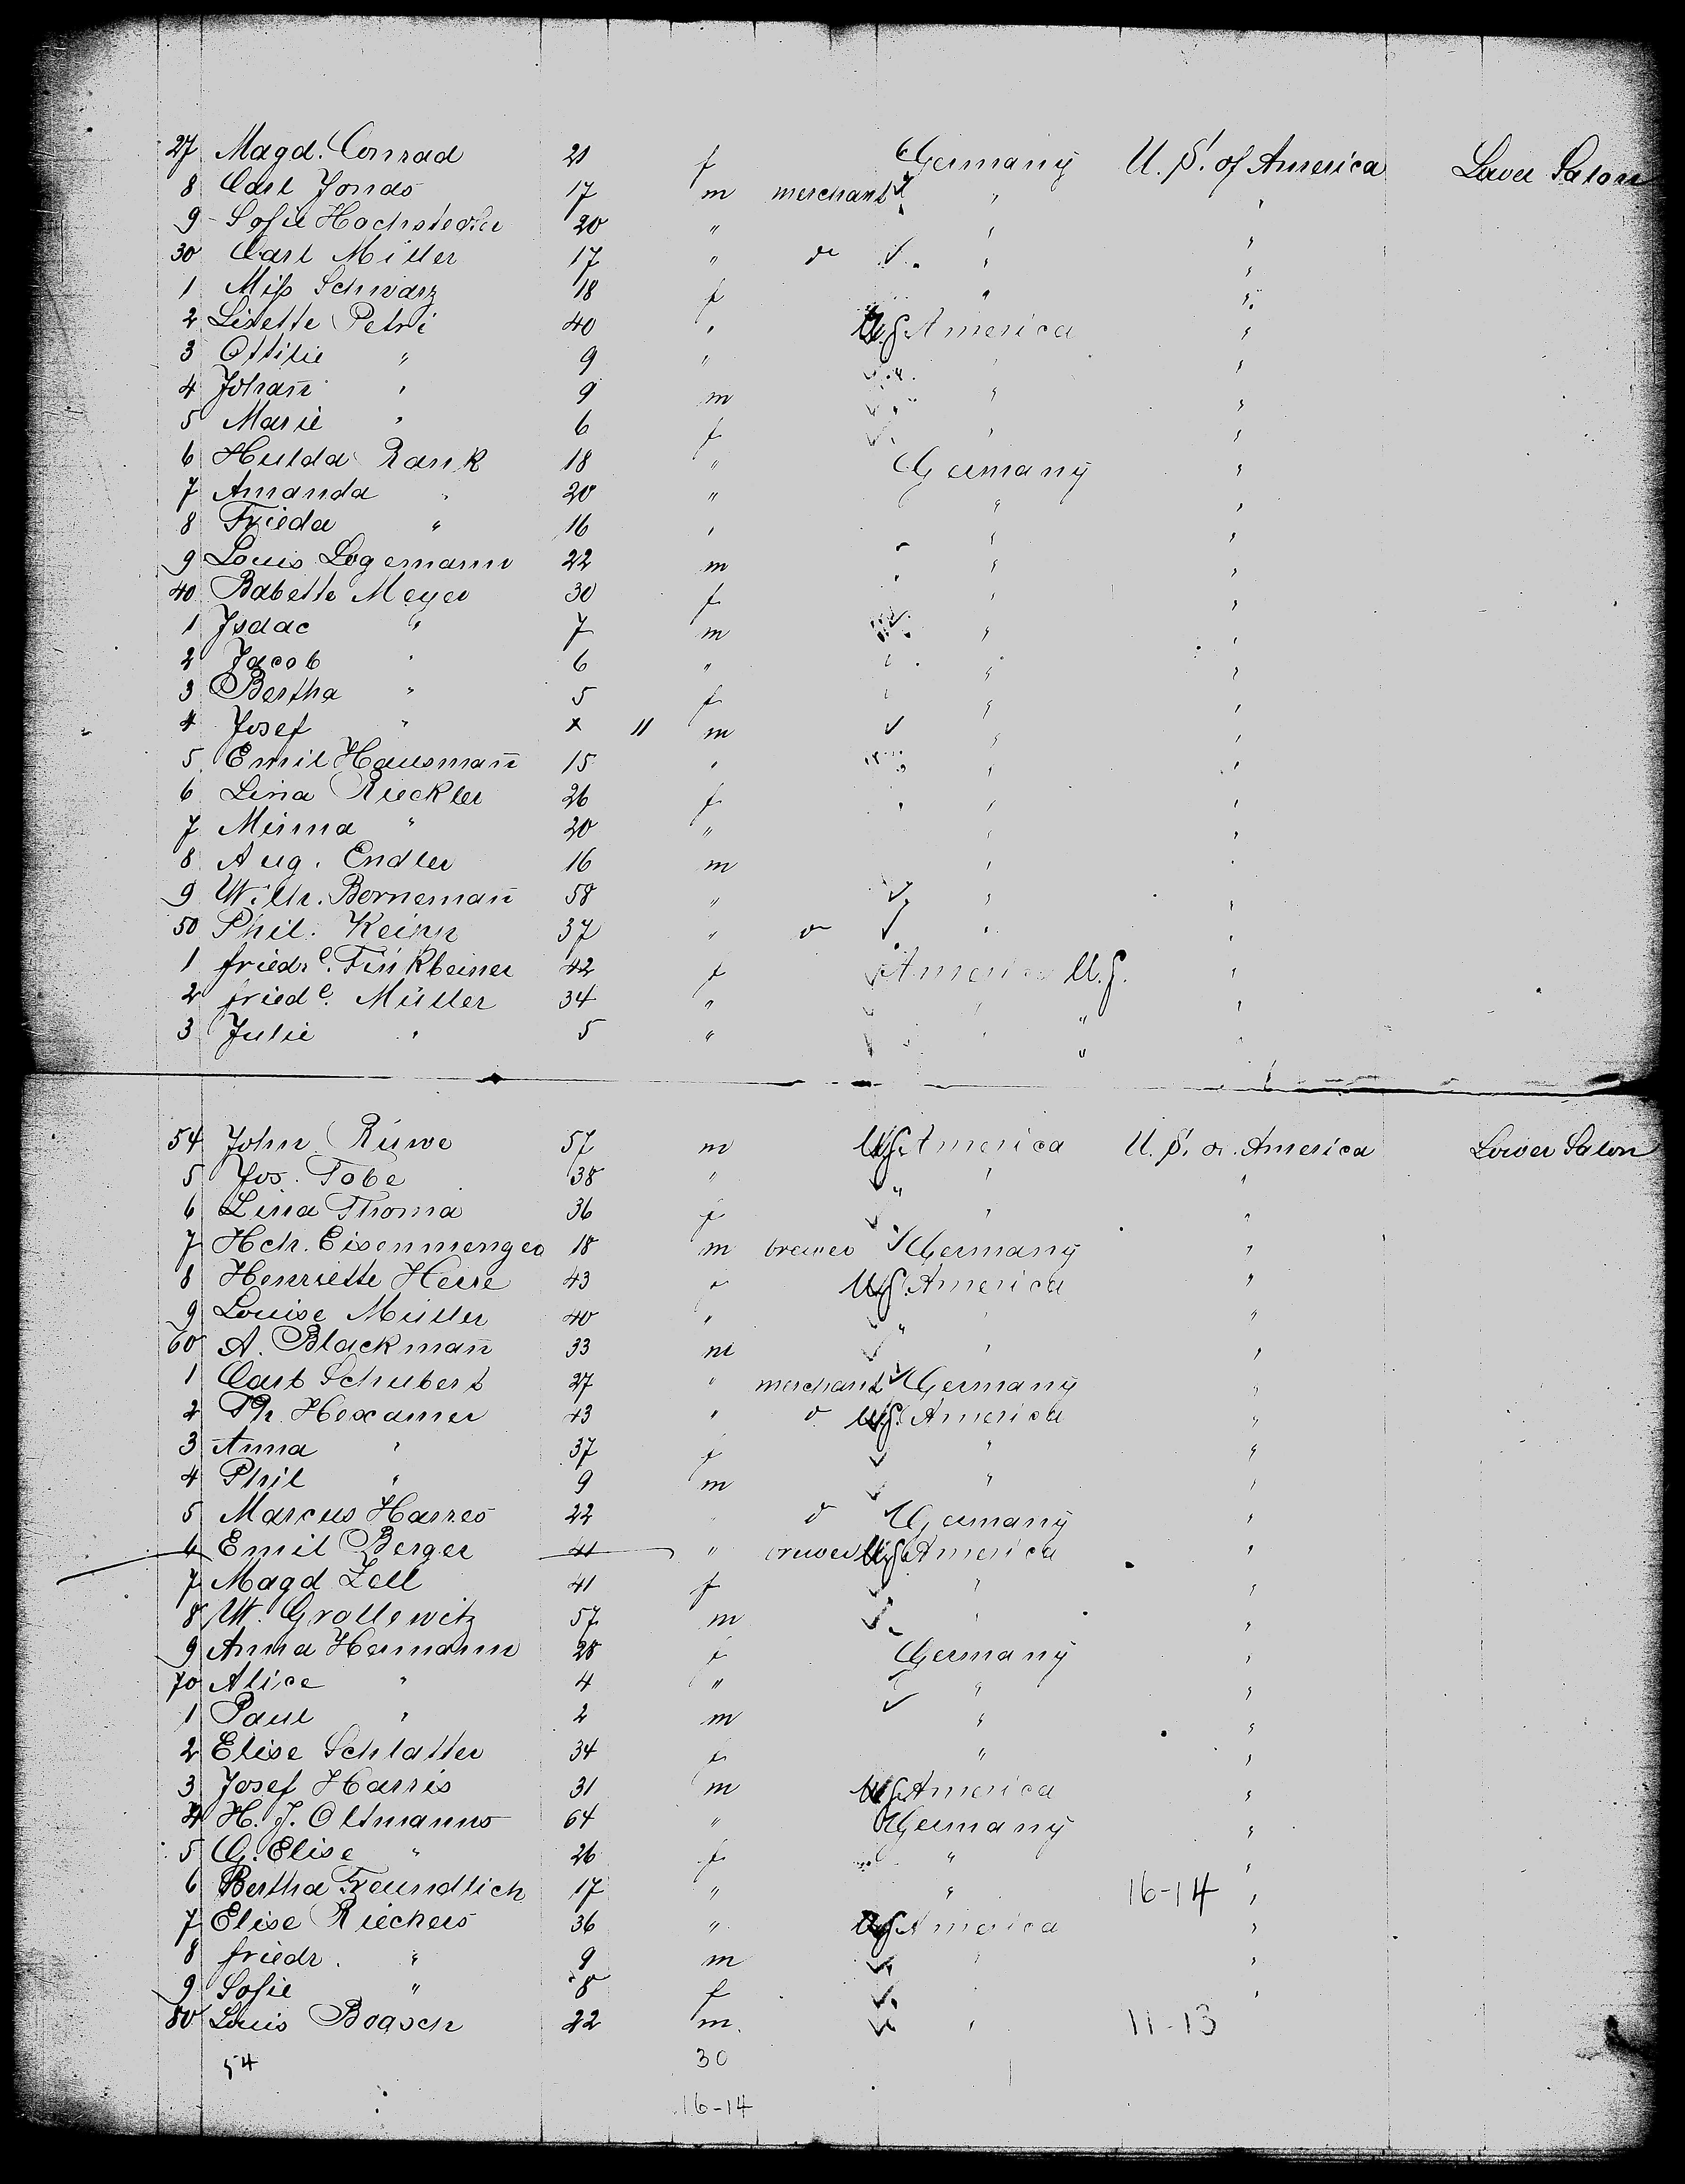 27 Magd. Conrad 21 f Germany U. S. of America Lower Salon
8 Carl Jonas 17 m merchant " "
9 Sofie Hochstedter 20 " " "
30 Carl Miller 17 " do " "
1 Miſs Schwarz 18 f " "
2 Lisette Petri 40 " U.S. America "
3 Ottilie " 9 " " "
4 Johan̄ " 9 m " "
5 Marie " 6 f " "
6 Hulda Rank 18 " Germany "
7 Amanda " 20 " " "
8 Frieda " 16 " " "
9 Louis Logemann 22 m " "
40 Babette Meyer 30 f " "
1 Isaac " 7 m " "
2 Jacob " 6 " " "
3 Bertha " 5 f " "
4 Josef " x 11 m " "
5 Emil Hausman̄ 15 " " "
6 Lina Rueckler 26 f " "
7 Minna " 20 " " "
8 Aug. Endler 16 m " "
9 Wilh. Borneman̄ 58 " " "
50 Phil. 37 " do " "
1 friedr e. Finkbeiner 42 f America U.S. "
2 fried e. Müller 34 " " " "
3 Julie " 5 " " " "
54 John Rüwe 57 m U.S. America U. S. o. America Lower Salon
5 Jos. Tobe 38 " " " "
6 Lina Thoma 36 f " "
7 Hch. Eisenmenger 18 m brewer Germany "
8 Henriette Herre 43 f U.S. America "
9 Louise Müller 40 " " " "
60 A. Blackman̄ 33 m " "
1 Carl Schubert 27 " merchant Germany "
2 Ph. Hexamer 43 " do U.S. America "
3 Anna " 37 f " "
4 Phil " 9 m " "
5 Marcus Harres 22 " do Germany "
6 Emil Berger 41 " brewer U.S. America "
7 Magd Zell 41 f " "
8 W. Grollewitz 57 m " "
9 Anna Hermann 28 f Germany "
70 Alice " 4 " " "
1 Paul " 2 m " "
2 Elise Schlatter 34 f " "
3 Josef Harris 31 m U.S. America "
4 H. J. Oltmanns 64 " Germany "
5 G. Elise " 26 f " "
6 Bertha Freundlich 17 " " 16-14 "
7 Elise Rieckers 36 " U.S. America "
8 friedr. " 9 m " "
9 Sofie " 8 f "
80 Louis Boasch 22 m. " 11-13
54 30
16-14